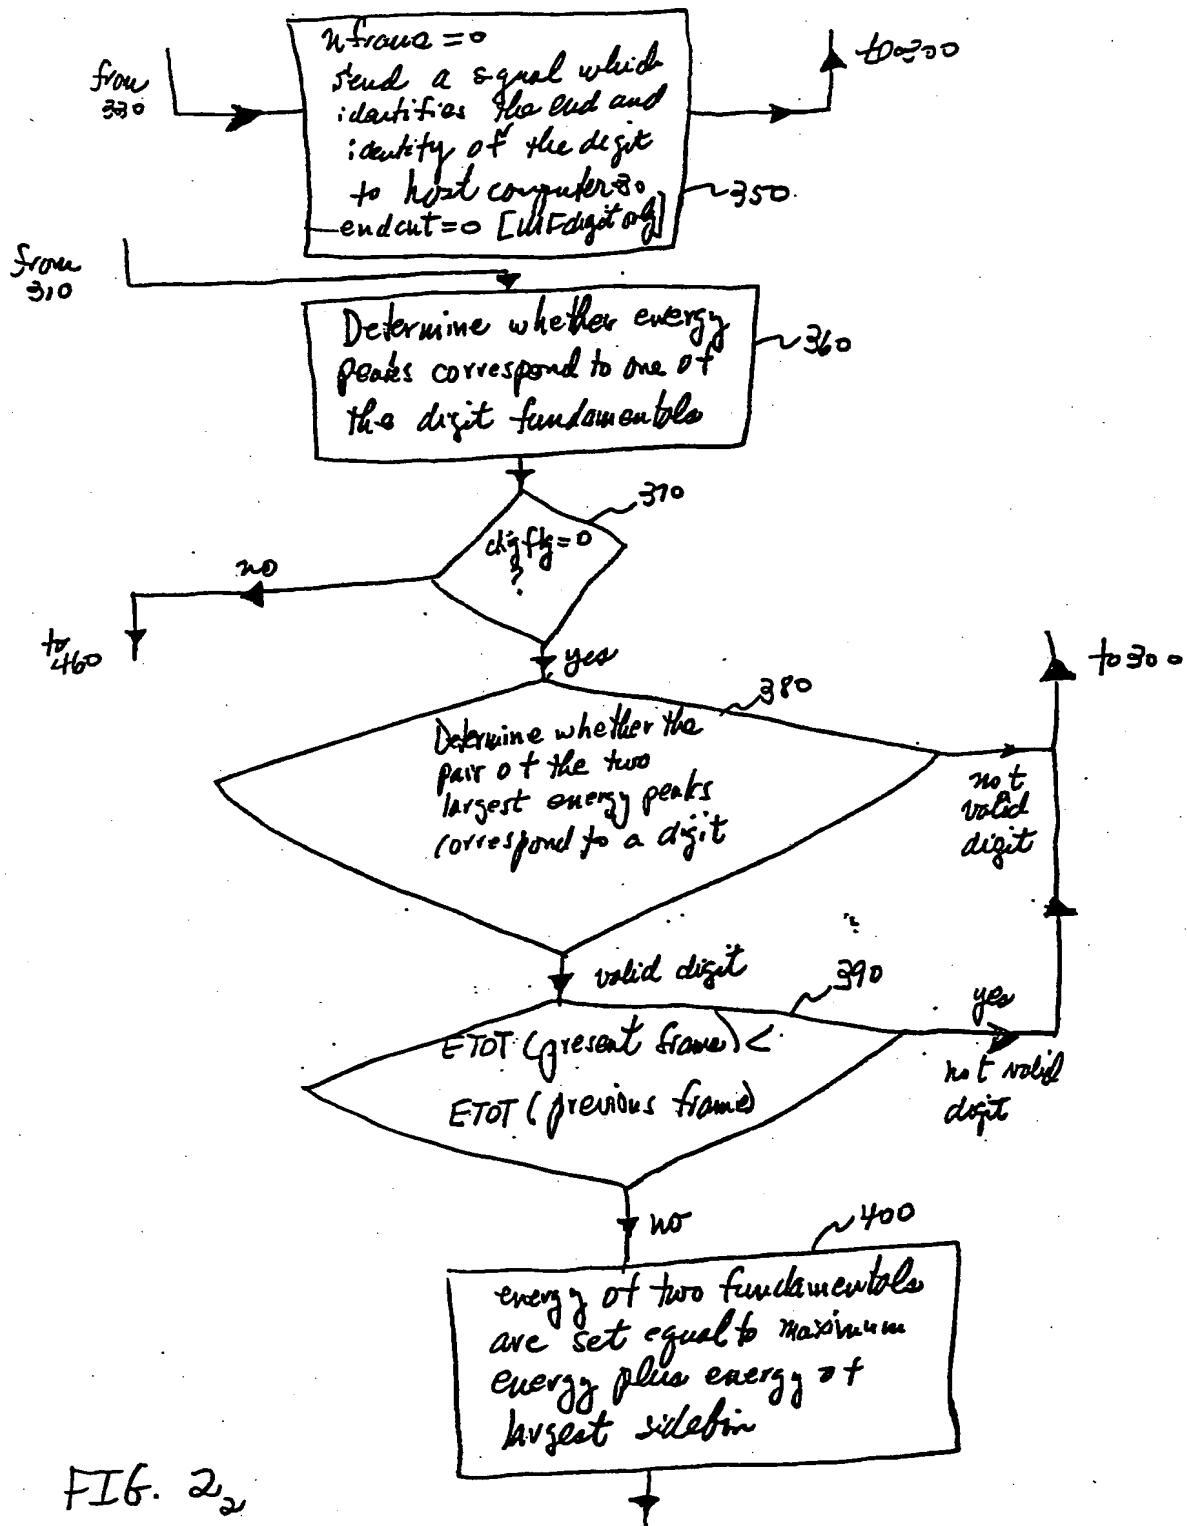 nframe = 0
send a signal which
identifies the end and
identity of the digit
to host computer 30
endcnt = 0 [MF digit only]
from
330
to 300
350
from
310
Determine whether energy
peaks correspond to one of
the digit fundamentals
360
370
digflg = 0
?
no
to
460
yes
380
to 300
Determine whether the
pair of the two
largest energy peaks
correspond to a digit
not
valid
digit
valid digit
390
yes
ETOT (present frame) <
ETOT (previous frame)
not valid
digit
no
400
energy of two fundamentals
are set equal to maximum
energy plus energy of
largest sidebin
FIG. 2₂